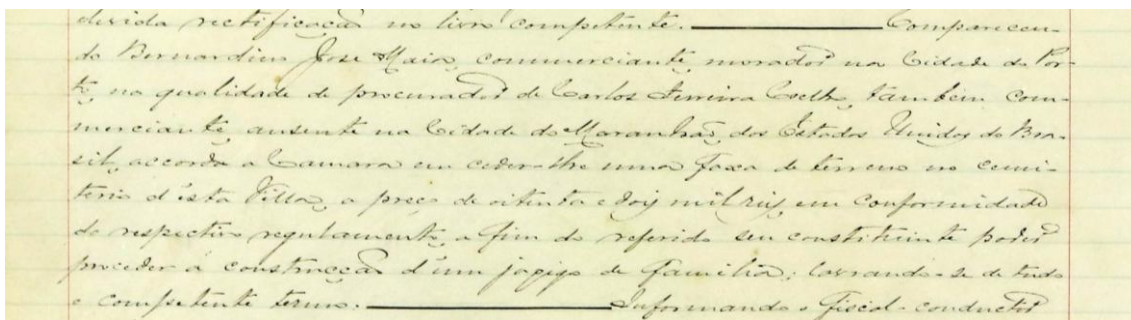 devida rectificação no livro competente. ——— Comparecen-
do Bernardino José Maia, commerciante, morador na Cidade do Por-
to, na qualidade de procurador de Carlos Ferreira Coelho, tambem com-
merciante, ausente na Cidade do Maranhão, dos Estados Unidos do Bra-
sil, accorda a Camara em ceder-lhe uma faxa de terreno no cemi-
terio d'esta Villa, a preço de oitenta e dois mil reis, em conformidade
do respectivo regulamento, a fim do referido seu constituinte poder
proceder á construcção d'um jazigo de familia; lavrando-se de tudo
o competente termo. ——— Informando o fiscal-conductor